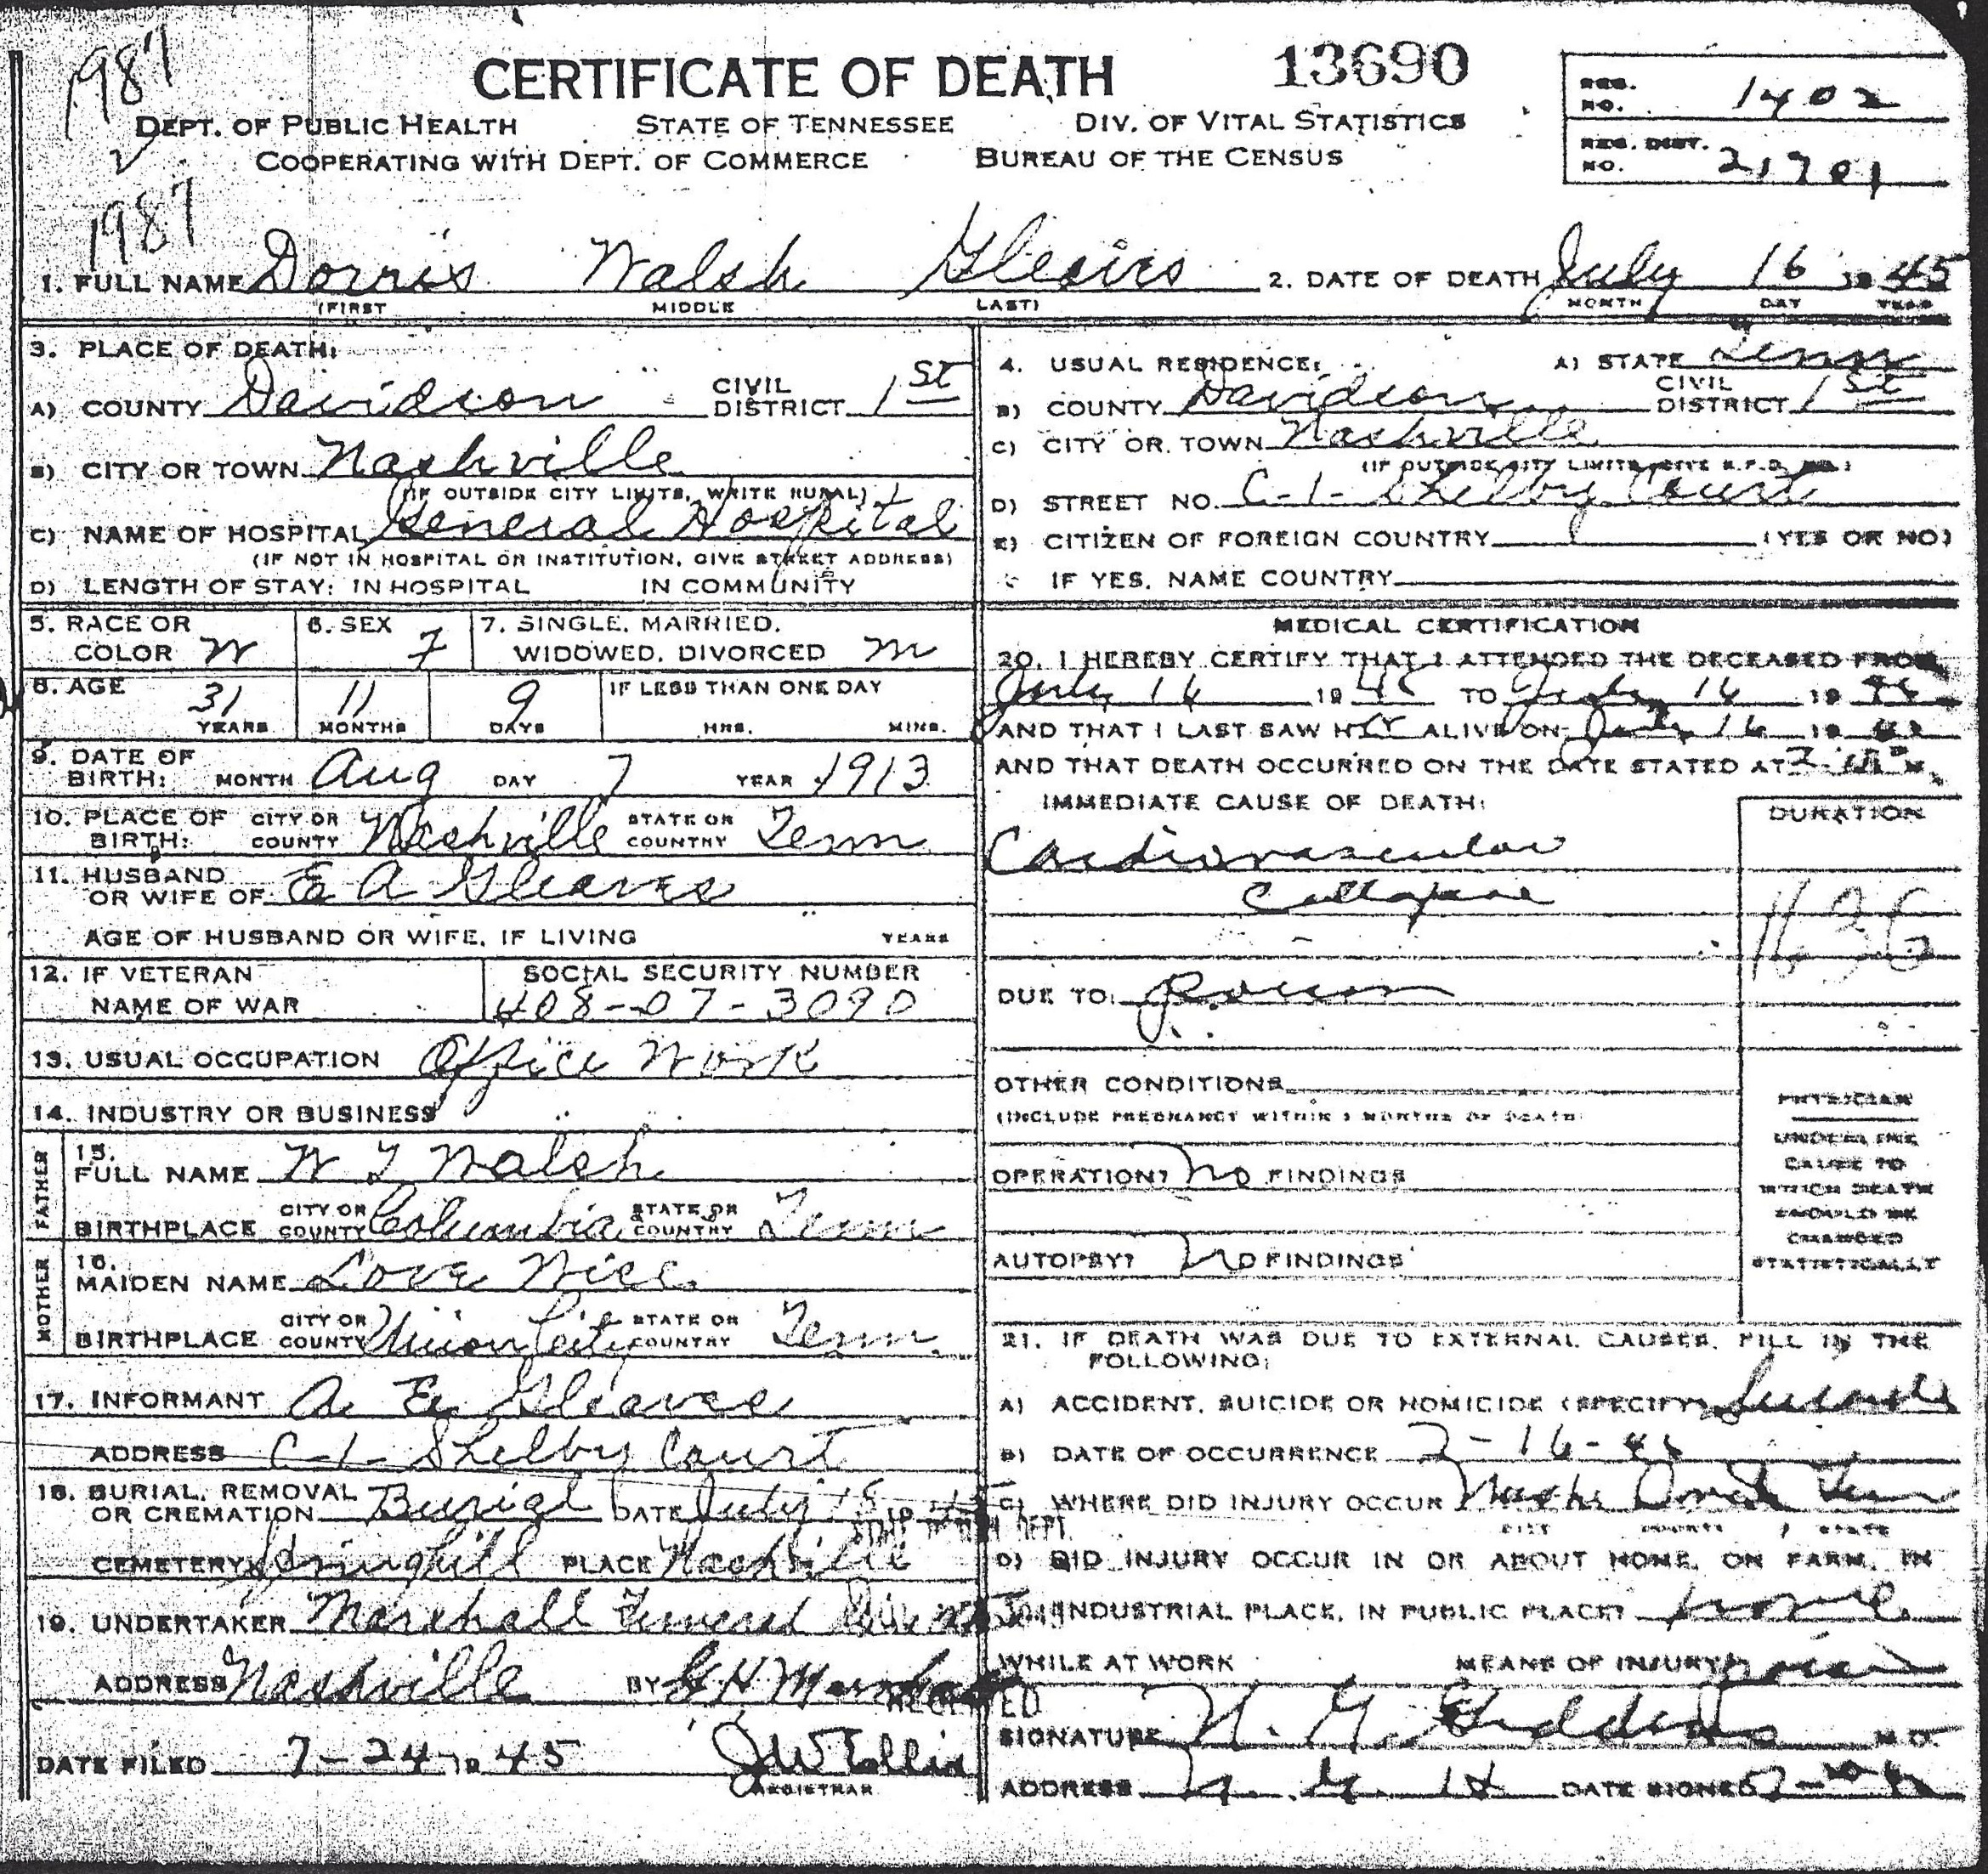 1987
CERTIFICATE OF DEATH 13690
REG. NO. 1402
DEPT. OF PUBLIC HEALTH STATE OF TENNESSEE DIV. OF VITAL STATISTICS
COOPERATING WITH DEPT. OF COMMERCE BUREAU OF THE CENSUS
REG. DIST. NO. 21701
1987
1. FULL NAME Dorris Walsh 2. DATE OF DEATH July 16 1945
(FIRST MIDDLE LAST) MONTH DAY YEAR
3. PLACE OF DEATH:
A) COUNTY Davidson CIVIL DISTRICT 1st
B) CITY OR TOWN Nashville
(IF OUTSIDE CITY LIMITS, WRITE RURAL)
C) NAME OF HOSPITAL General Hospital
(IF NOT IN HOSPITAL OR INSTITUTION, GIVE STREET ADDRESS)
D) LENGTH OF STAY: IN HOSPITAL IN COMMUNITY
4. USUAL RESIDENCE: A) STATE Tenn
B) COUNTY Davidson CIVIL DISTRICT 1st
C) CITY OR TOWN Nashville
(IF OUTSIDE CITY LIMITS, GIVE R.F.D. NO.)
D) STREET NO. C-1- Shelby Court
E) CITIZEN OF FOREIGN COUNTRY (YES OR NO)
IF YES, NAME COUNTRY
5. RACE OR COLOR W 6. SEX F 7. SINGLE, MARRIED, WIDOWED, DIVORCED M
8. AGE 31 YEARS 11 MONTHS 9 DAYS IF LESS THAN ONE DAY HRS. MINS.
9. DATE OF BIRTH: MONTH Aug DAY 7 YEAR 1913
10. PLACE OF BIRTH: CITY OR COUNTY Nashville STATE OR COUNTRY Tenn
11. HUSBAND OR WIFE OF E A Gleaves
AGE OF HUSBAND OR WIFE, IF LIVING YEARS
12. IF VETERAN NAME OF WAR SOCIAL SECURITY NUMBER 408-07-3090
13. USUAL OCCUPATION Office Work
14. INDUSTRY OR BUSINESS
FATHER
15. FULL NAME W T Walsh
BIRTHPLACE CITY OR COUNTY Columbia STATE OR COUNTRY Tenn
MOTHER
16. MAIDEN NAME Love
BIRTHPLACE CITY OR COUNTY Union City STATE OR COUNTRY Tenn.
17. INFORMANT A. E. Gleaves
ADDRESS C-1- Shelby Court
18. BURIAL, REMOVAL OR CREMATION Burial DATE July 18
CEMETERY Springhill PLACE Nashville
19. UNDERTAKER Marshall Funeral
ADDRESS Nashville BY
DATE FILED 7-24 1945 REGISTRAR
MEDICAL CERTIFICATION
20. I HEREBY CERTIFY THAT I ATTENDED THE DECEASED FROM
July 16 19 45 TO July 16 19 45
AND THAT I LAST SAW HER ALIVE ON July 16 19
AND THAT DEATH OCCURRED ON THE DATE STATED AT
IMMEDIATE CAUSE OF DEATH: DURATION
Cardiovascular
Collapse
DUE TO: Poison
OTHER CONDITIONS
(INCLUDE PREGNANCY WITHIN 3 MONTHS OF DEATH)
OPERATION? No FINDINGS
AUTOPSY? No FINDINGS
PHYSICIAN
UNDERLINE
CAUSE TO
WHICH DEATH
SHOULD BE
CHARGED
STATISTICALLY
21. IF DEATH WAS DUE TO EXTERNAL CAUSES, FILL IN THE
FOLLOWING:
A) ACCIDENT, SUICIDE OR HOMICIDE (SPECIFY) Suicide
B) DATE OF OCCURRENCE 7-16-45
C) WHERE DID INJURY OCCUR Nash Tenn
CITY COUNTY STATE
D) DID INJURY OCCUR IN OR ABOUT HOME, ON FARM, IN
INDUSTRIAL PLACE, IN PUBLIC PLACE? home
WHILE AT WORK MEANS OF INJURY poison
SIGNATURE M.D.
ADDRESS DATE SIGNED